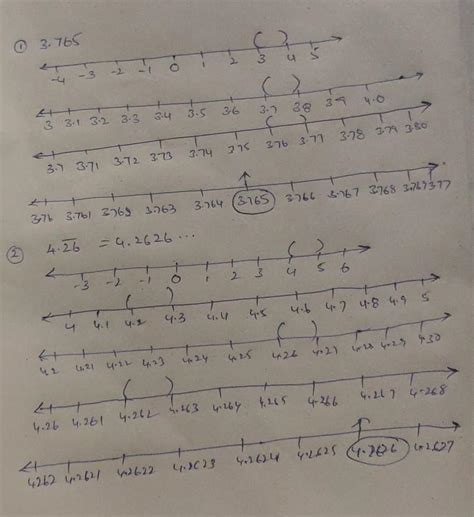 ① 3.765
-4 -3 -2 -1 0 1 2 3 4 5
3 3.1 3.2 3.3 3.4 3.5 3.6 3.7 3.8 3.9 4.0
3.7 3.71 3.72 3.73 3.74 3.75 3.76 3.77 3.78 3.79 3.80
3.76 3.761 3.763 3.764 3.765 3.766 3.767 3.768 3.769 3.77
② 4.2̅6̅ = 4.2626...
-3 -2 -1 0 1 2 3 4 5 6
4 4.1 4.2 4.3 4.4 4.5 4.6 4.7 4.8 4.9 5
4.2 4.21 4.22 4.23 4.24 4.25 4.26 4.27 4.28 4.29 4.30
4.26 4.261 4.262 4.263 4.264 4.265 4.266 4.267 4.268
4.262 4.2621 4.2622 4.2623 4.2624 4.2625 4.2626 4.2627